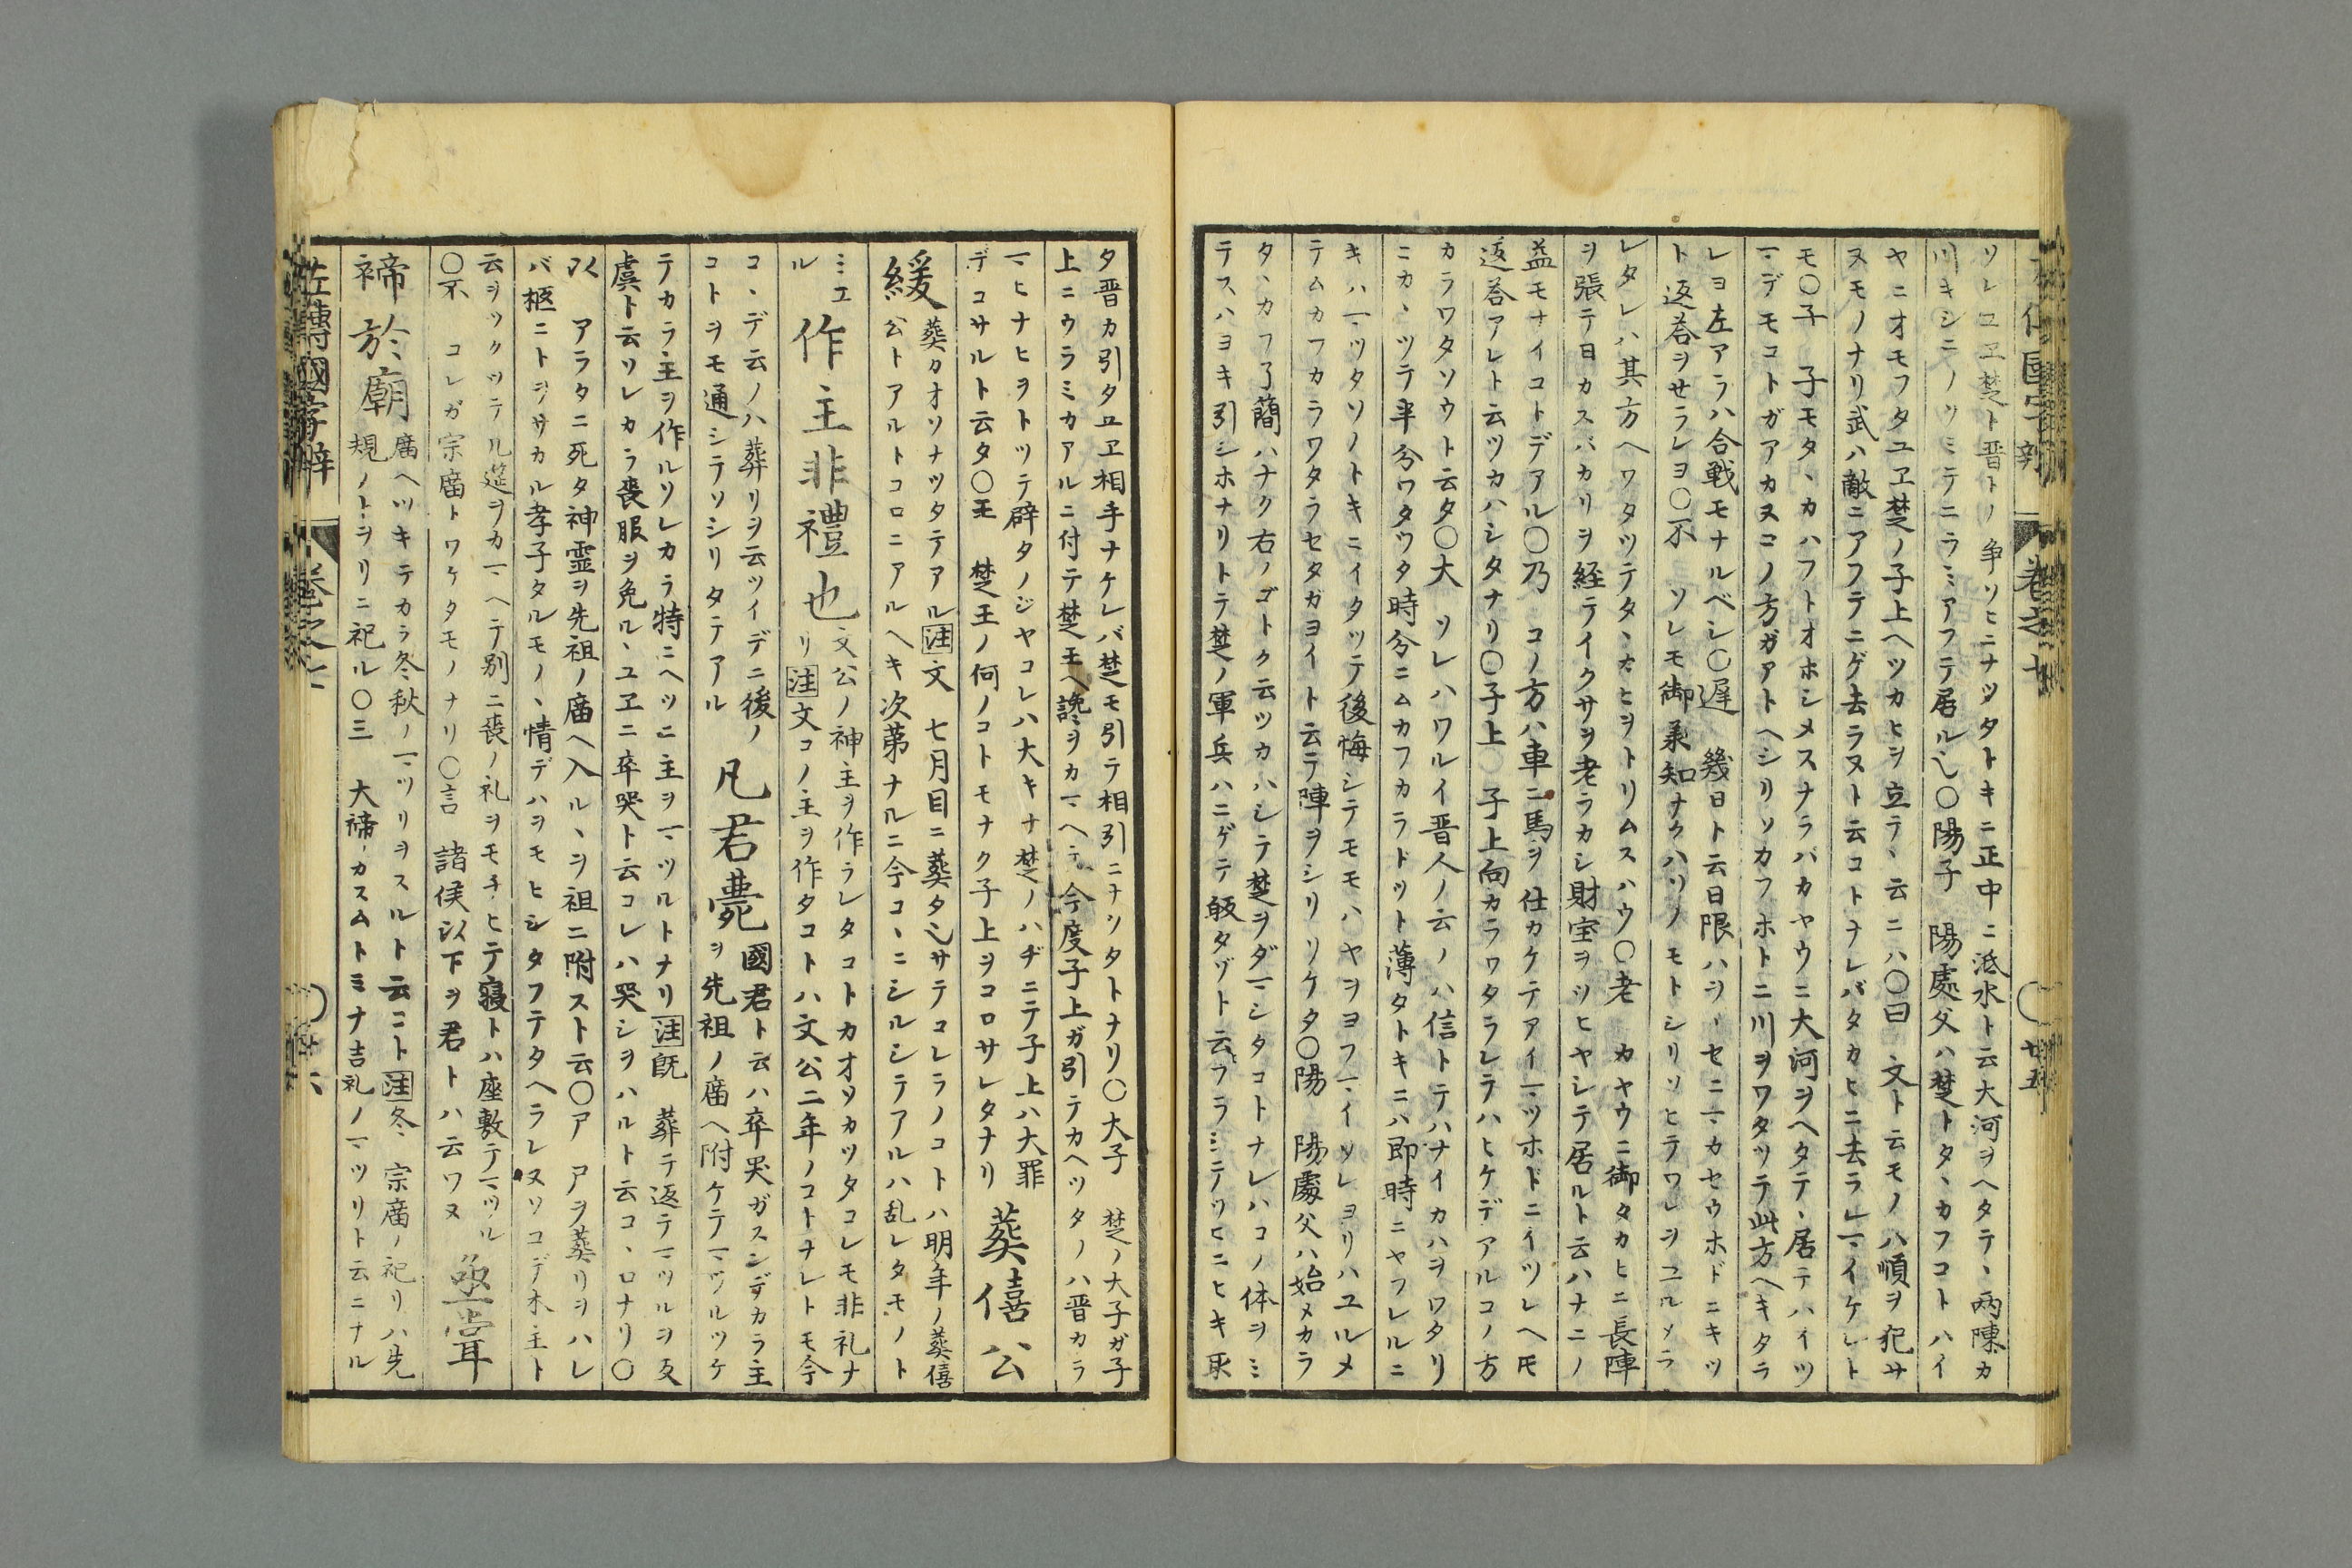 ソレユヱ楚ト晋トノ争ソヒニナツタトキニ正中ニ泜水ト云大河ヲヘタテヽ両陳カ
川キシニノソミテニラミアフテ居ル〇陽子　陽處父ハ楚トタヽカフコトハイ
ヤニオモフタユヱ楚ノ子上ヘツカヒヲ立テヽ云ニハ〇曰　文ト云モノハ順ヲ犯サ
ヌモノナリ武ハ敵ニアフテニゲ去ラヌト云コトナレバタカヒニ去ラレマイケレト
モ〇子　子モタヽカハフトオホシメスナラバカヤウニ大河ヲヘタテヽ居テハイツ
マデモコトガアカヌコノ方ガアトヘシリソカフホトニ川ヲワタツテ此方ヘキタラ
レヨ左アラハ合戦モナルベシ〇遅　幾日ト云日限ハヲヽセニマカセウホドニキツ
ト返荅ヲせラレヨ〇不　ソレモ御承知ナクハリノモトシリソヒテワレヲユルメラ
レタレハ其方ヘワタツテタヽカヒヲトリムスハウ〇老　カヤウニ御タカヒニ長陣
ヲ張テ日カスバカリヲ経テイクサヲ老ラカシ財宝ヲツヒヤシテ居ルト云ハナニノ
益モナイコトデアル〇乃　コノ方ハ車ニ馬ヲ仕カケテアイマツホドニイツレヘモ
返荅アレト云ツカハシタナリ〇子上〇子上向カラワタラレテハヒケデアルコノ方
カラワタソウト云タ〇大　ソレハワルイ晋人ノ云ノハ信トテハナイカハヲワタリ
ニカヽツテ半分ワタツタ時分ニムカフカラドツト薄タトキニハ即時ニヤフレルニ
キハマツタソノトキニイタツテ後悔シテモモハヤヲヨフマイソレヨリハユルメ
テムカフカラワタラセタガヨイト云テ陣ヲシリソケタ〇陽　陽處父ハ始メカラ
タヽカフ了簡ハナク右ノゴトク云ツカハシテ楚ヲダマシタコトナレハコノ体ヲミ
テスハヨキ引シホナリトテ楚ノ軍兵ハニゲテ皈タゾト云フラミテツヒニヒキ取
タ晋カ引タユヱ相手ナケレバ楚モ引テ相引ニナツタトナリ〇大子　楚ノ大子ガ子
上ニウラミカアルニ付テ楚王ヘ讒ヲカマヘテ今度子上ガ引テカヘツタノハ晋カラ
マヒナヒヲトツテ辟タノジヤコレハ大キナ楚ノハヂニテ子上ハ大罪
デコサルト云タ〇王　楚王ノ何ノコトモナク子上ヲコロサレタナリ
葬僖公
緩
葬カオソナツタテアル注文　七月目ニ葬タサテコレラノコトハ明年ノ葬僖
公トアルトコロニアルヘキ次第ナルニ今コヽニシルシテアルハ乱レタモノト
ミエ
ル
作主非禮也
文公ノ神主ヲ作ラレタコトカオソカツタコレモ非礼ナ
リ注文コノ主ヲ作タコトハ文公二年ノコトナレトモ今
コヽデ云ノハ葬リヲ云ツイデニ後ノ
コトヲモ通シテソシリタテアル
凡君薨
國君ト云ハ卒哭ガスンデカラ主
ヲ先祖ノ廟ヘ附ケテマヅルツケ
テカラ主ヲ作ルソレカラ特ニヘツニ主ヲマツルトナリ注既　葬テ返テマツルヲ反
虞ト云ソレカラ喪服ヲ免ルヽユヱニ卒哭ト云コレハ哭シヲハルト云コヽロナリ〇
以　アラタニ死タ神霊ヲ先祖ノ廟ヘ入ルヽヲ祖ニ附スト云〇ア　尸ヲ葬リヲハレ
バ柩ニトヲサカル孝子タルモノヽ情デハヲモヒシタフテタヘラレヌソコデ木主ト
云ヲツクツテ几筵ヲカマヘテ別ニ喪ノ礼ヲモチヒテ寝トハ座敷テマツル
〇不　コレガ宗廟トワケタモノナリ〇言　諸侯以下ヲ君トハ云ワヌ
烝嘗
禘於廟
廟ヘツキテカラ冬秋ノマツリヲスルト云コト注冬　宗廟ノ祀リハ先
規ノトヲリニ祀ル〇三　大禘カスムトミナ吉礼ノマツリト云ニナル
左傳國字辨　巻之七